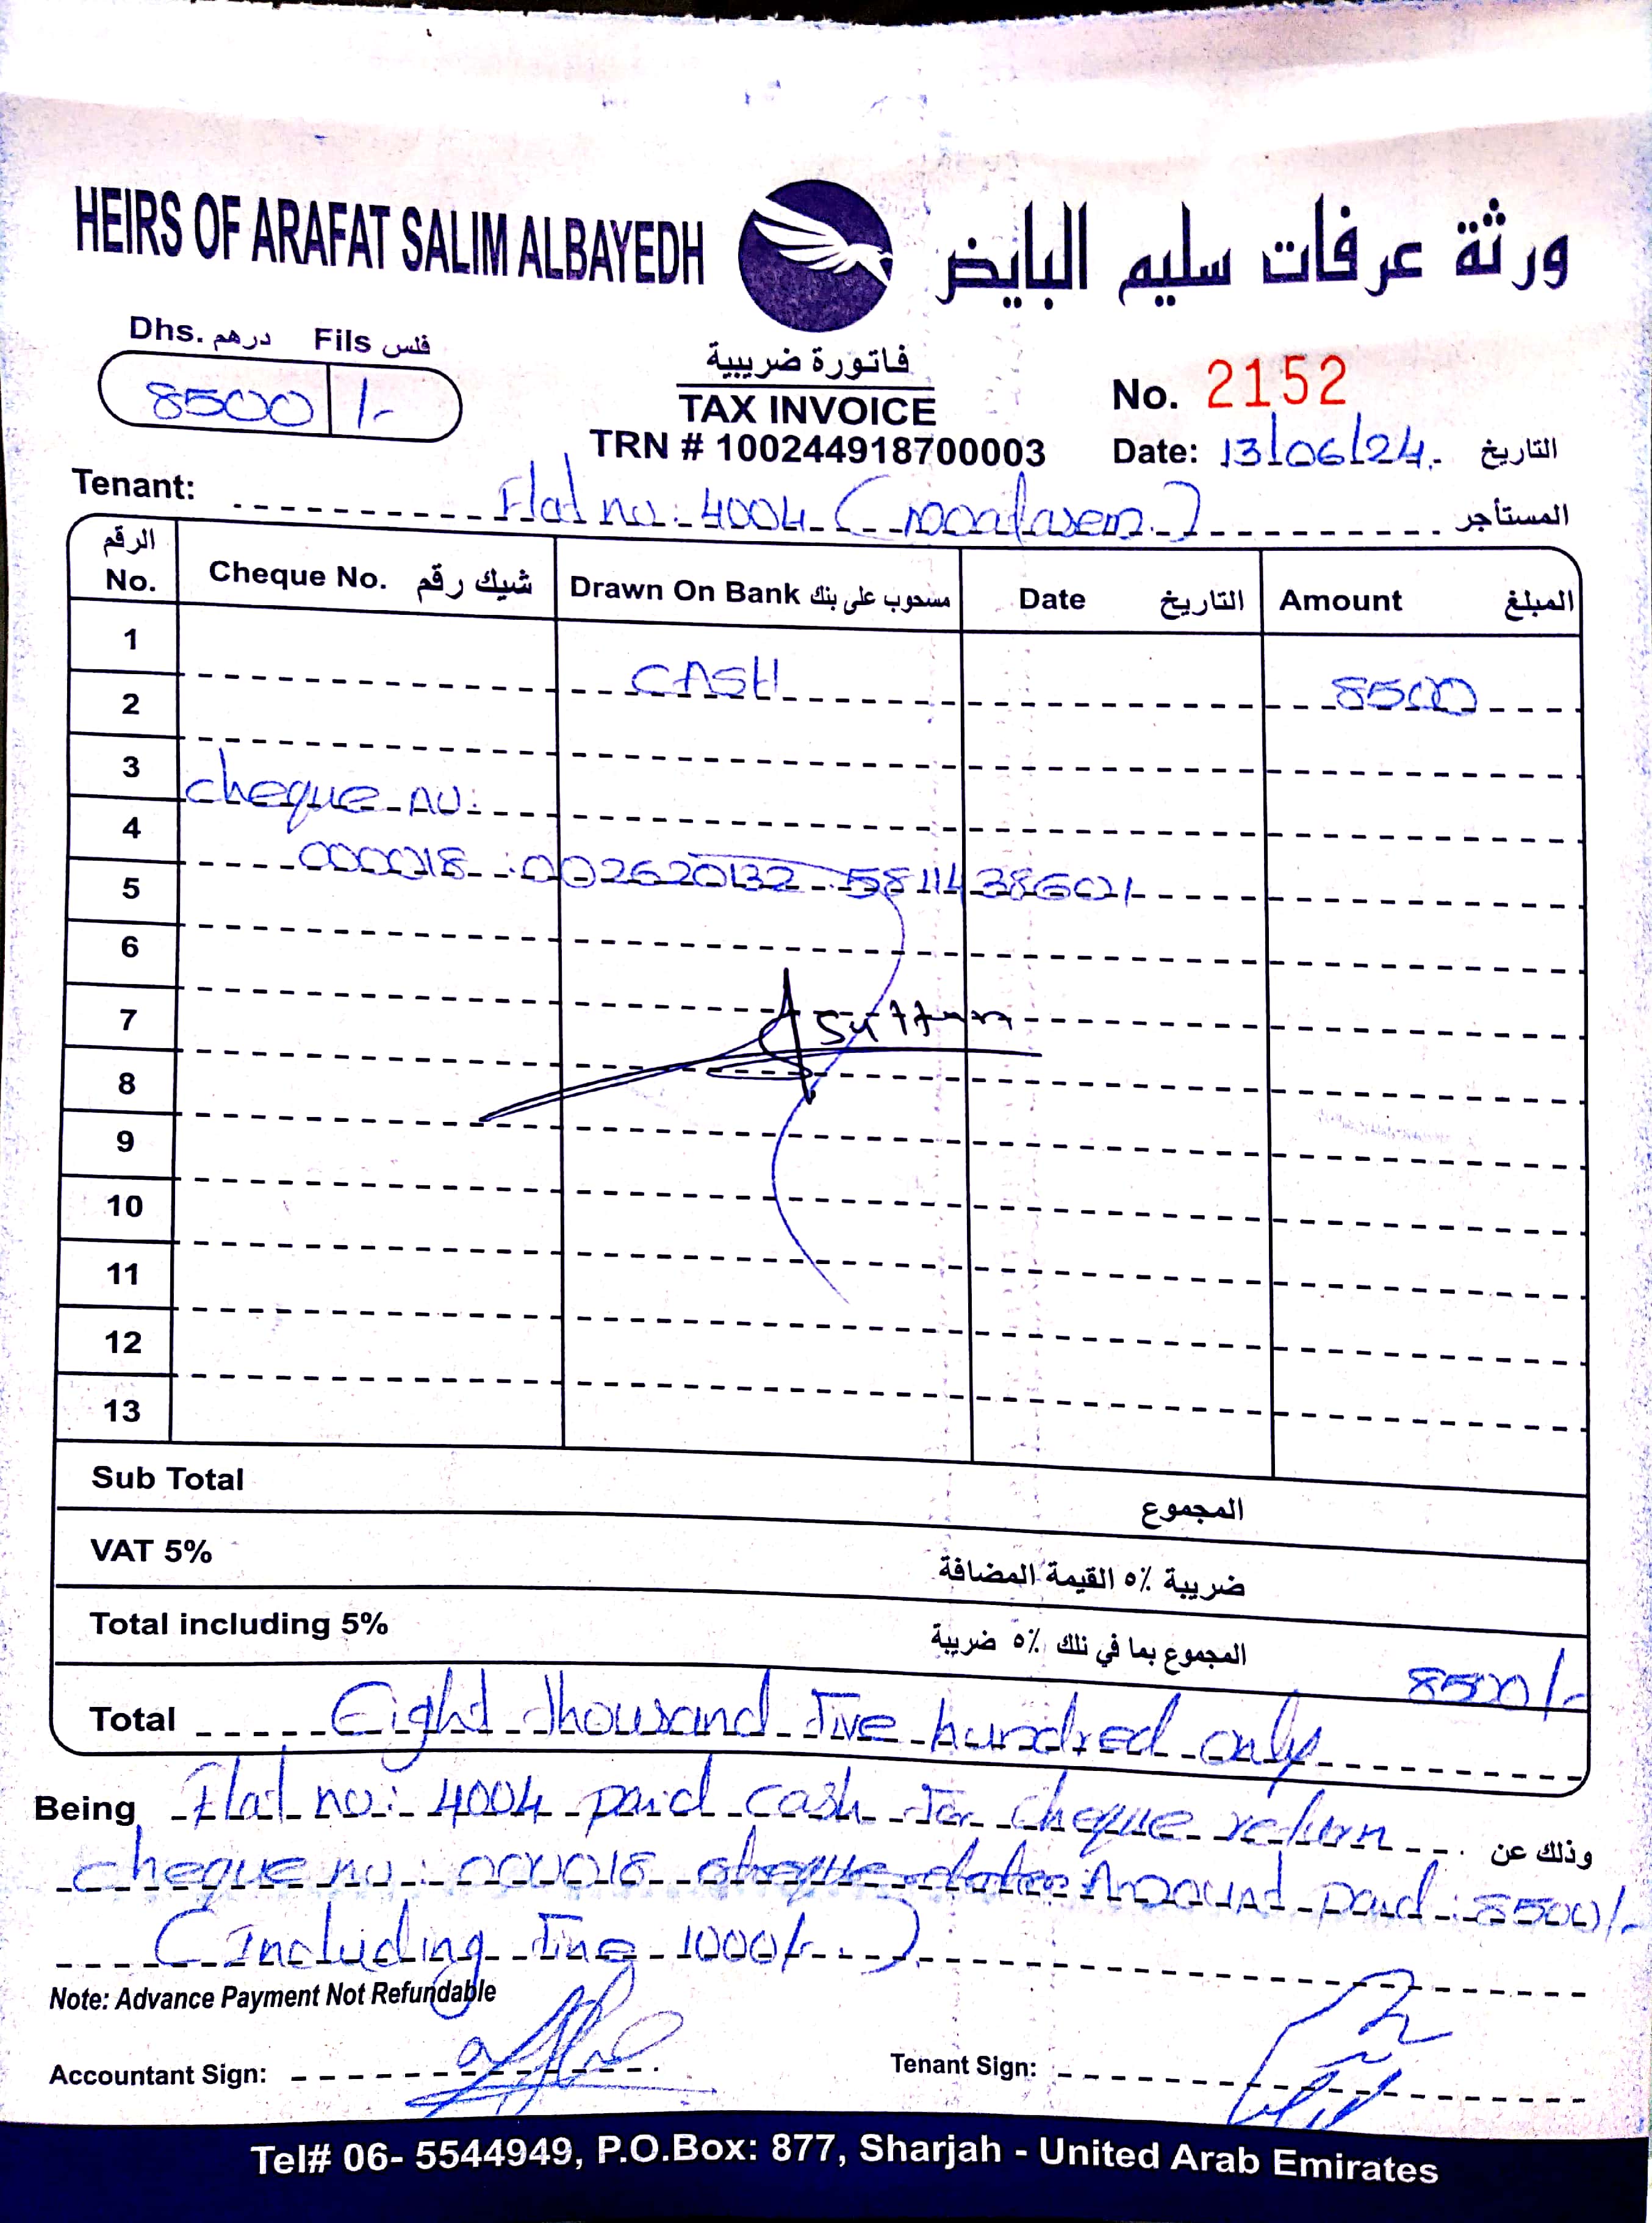 HEIRS OF ARAFAT SALIM ALBAYEDH ورثة عرفات سليم البايض
Dhs. درهم Fils فلس
8500 /-
فاتورة ضريبية
TAX INVOICE
TRN # 100244918700003
No. 2152
Date: 13/06/24. التاريخ
Tenant: Flat no: 4004 (moatasem) المستأجر
الرقم No. Cheque No. شيك رقم Drawn On Bank مسحوب على بنك Date التاريخ Amount المبلغ
1 CASH 8500
2
3 cheque no:
4 000018 : 002620132 58114 38601
5
6
7
8
9
10
11
12
13
Sub Total المجموع
VAT 5% ضريبة ٥٪ القيمة المضافة
Total including 5% المجموع بما في ذلك ٥٪ ضريبة 8500/-
Total Eight thousand Five hundred only
Being Flat no: 4004 paid cash for cheque return وذلك عن
cheque no: 000018 Amount paid: 8500/-
(Including Fine 1000/-)
Note: Advance Payment Not Refundable
Accountant Sign: Tenant Sign:
Tel# 06- 5544949, P.O.Box: 877, Sharjah - United Arab Emirates